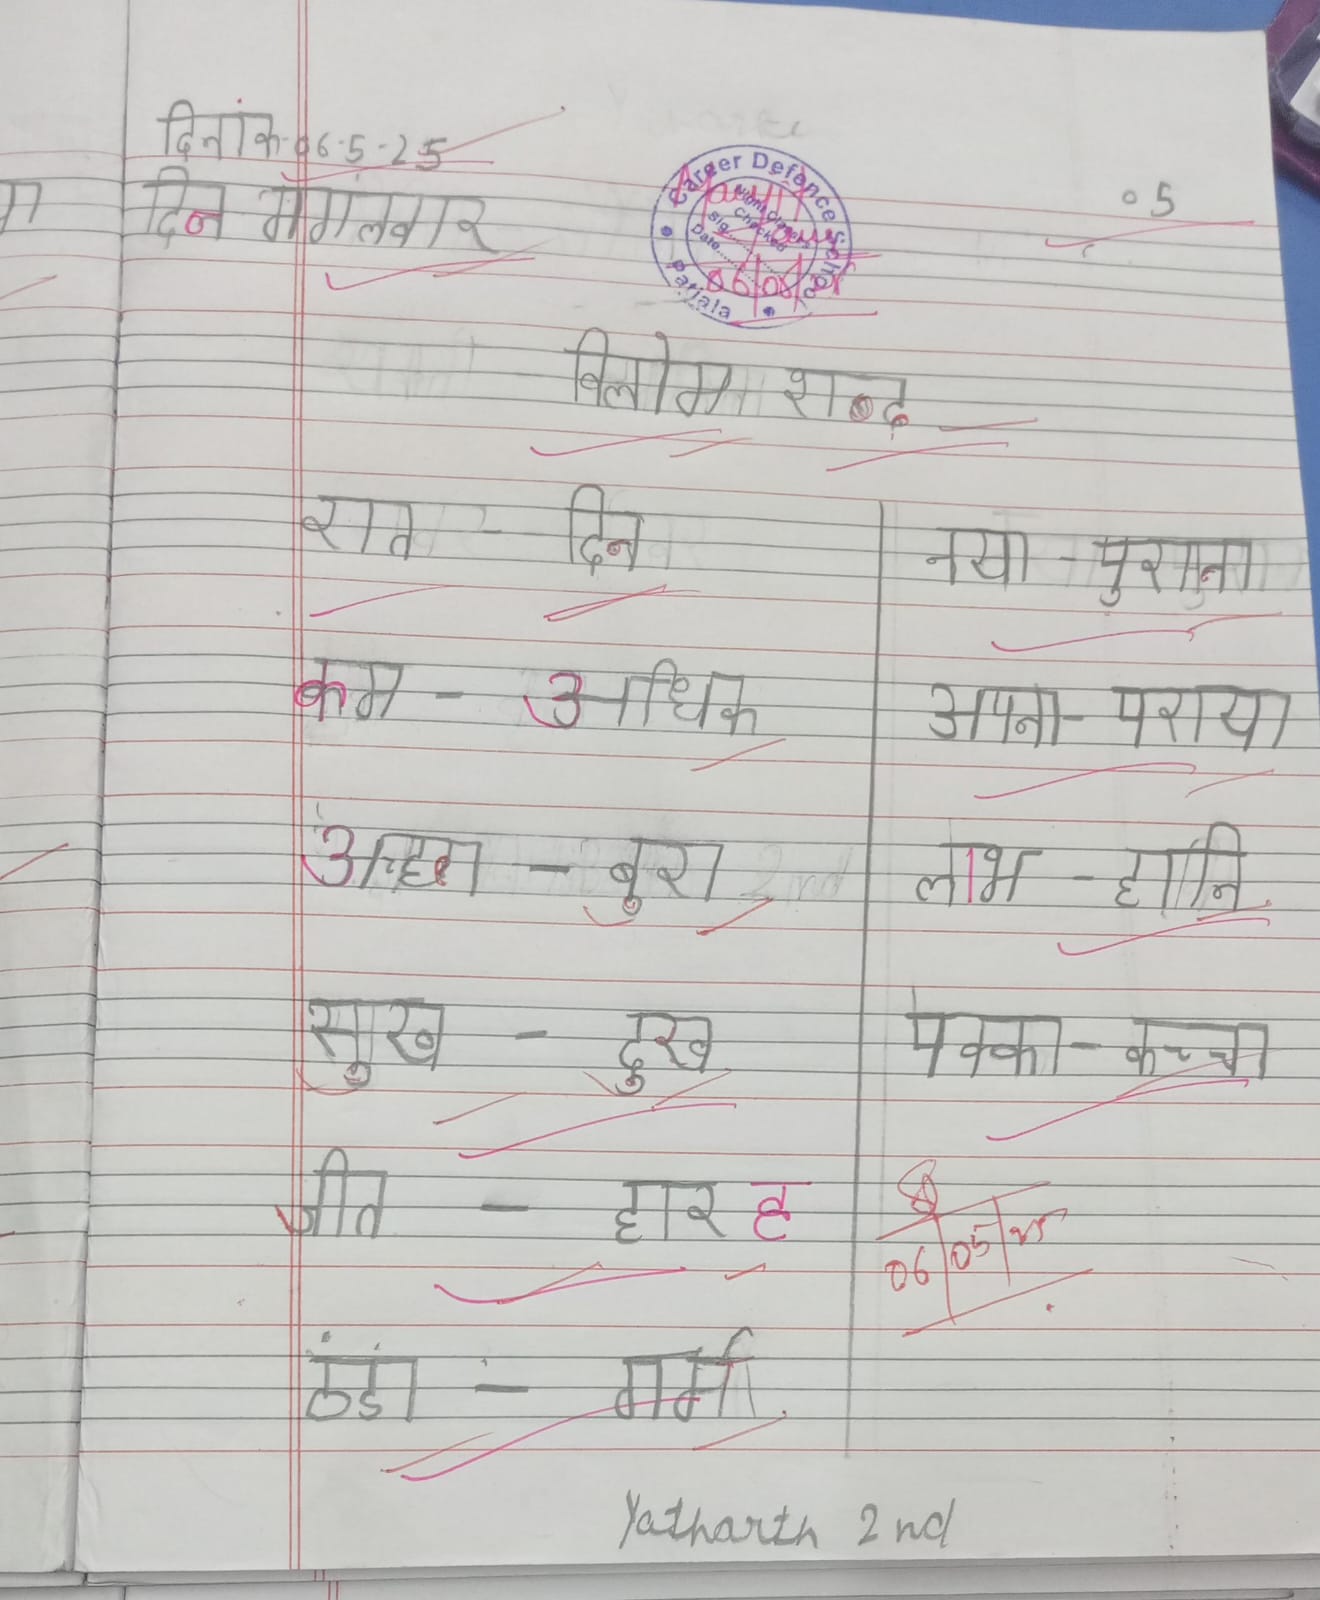 दिनांक-06-5-25
05
दिन मंगलवार
Career Defence School
Patiala
Checked
Sig.
Date
06/05/25
विलोम शब्द
रात - दिन
कम - अधिक
अच्छा - बुरा
सुख - दुख
जीत - हार ह
ठंडा - गर्मी
नया - पुराना
अपना - पराया
लाभ - हानि
पक्का - कच्चा
06/05/25
Yatharth 2nd